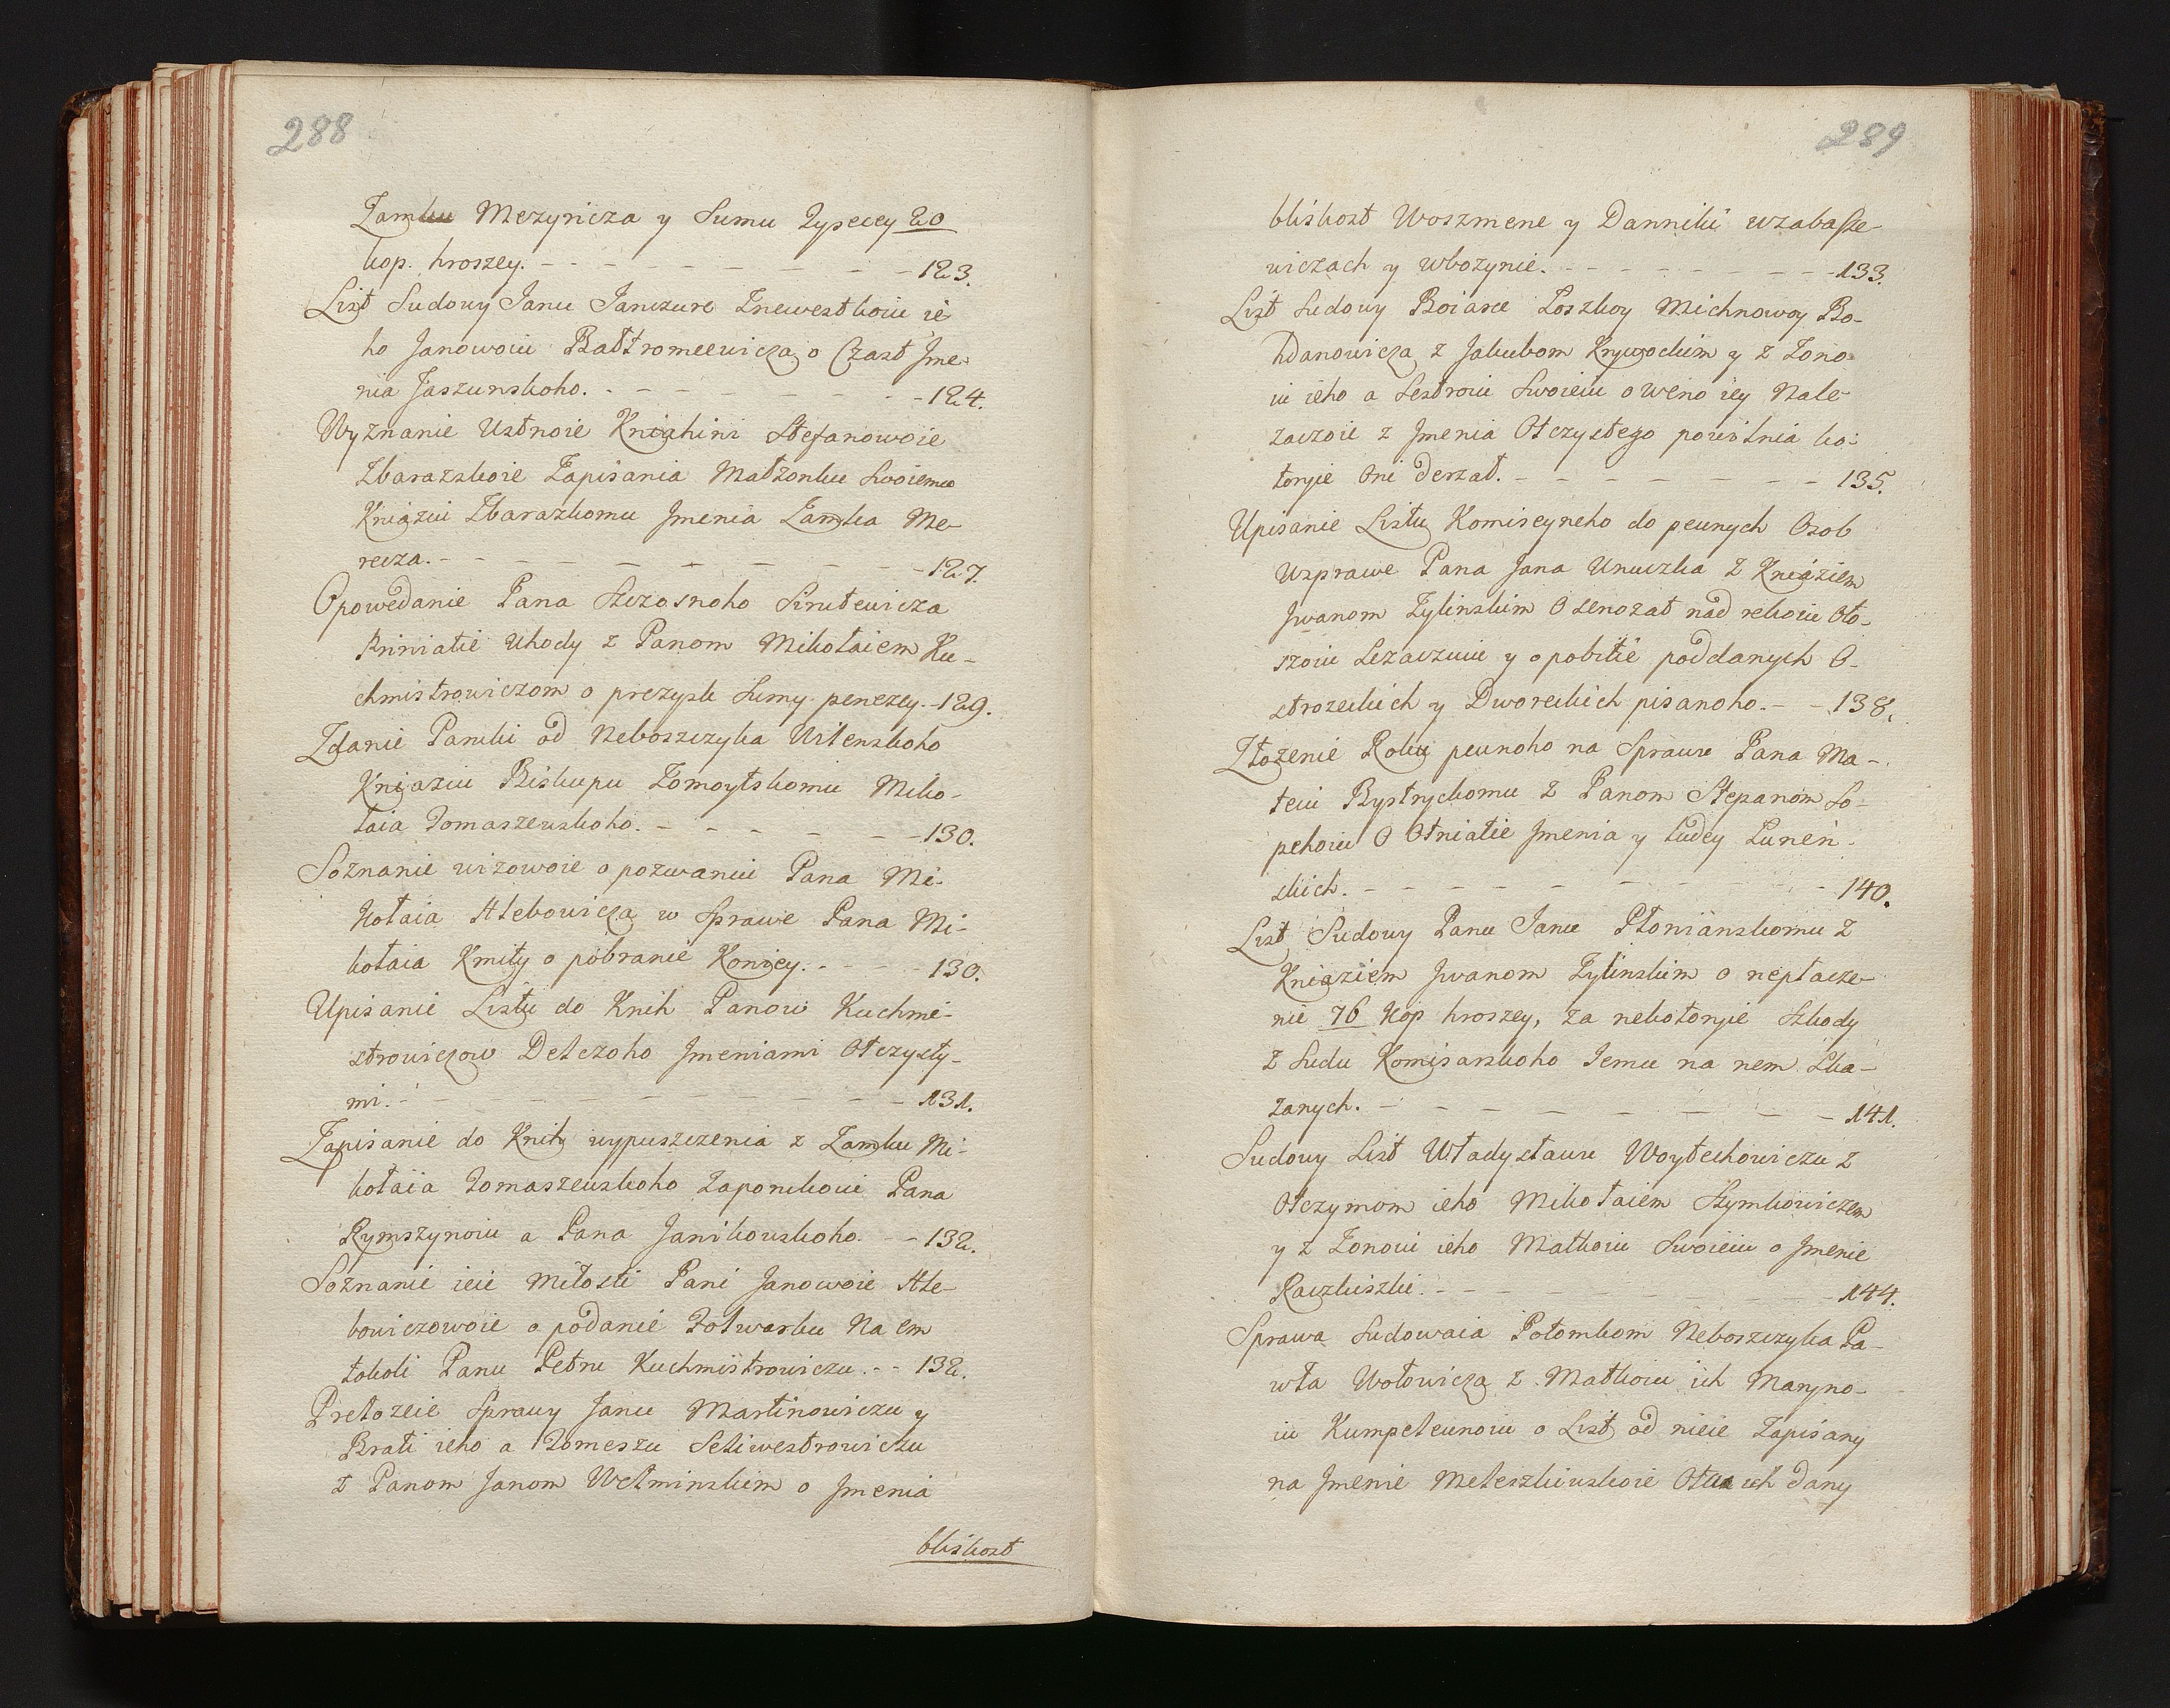 288
Zamku Mezyricza y Sumu Tysecey 20
kop. hroszey. - - - - - - - - 123.
List Sudowy Janu Janczure Znewestkoiu ie
ho Janowoiu Bałtromeewicza o Czast Jme-
nia Jaszunskoho. - - - - - - - 124.
Wyznanie Ustnoie Kniahini Stefanowoie
Zbarazskoie Zapisania Małzonku Swoiemu
Kniaziu Zbarazkomu Jmenia Zamka Me-
recza. - - - - - - - - - 127.
Opowedanie Pana Szczosnoho Sirutewicza
Priniatie Uhody z Panom Mikołaiem Ku-
chmistrowiczom o prezysk Sumy penezey. - 129.
Zdanie Pamki od Neboszczyka Wilenskoho
Kniaziu Biskupu Zomoytskomu Miko-
łaia Tomaszewskoho. - - - - - - 130.
Soznanie wizowoie o pozwaniu Pana Mi-
kołaia Hlebowicza w Sprawe Pana Mi-
kołaia Kmity o pobranie Koniey. - - - 130.
Upisanie Listu do Knih Panow Kuchmi-
strowiczow Delczoho Jmeniami Otczysty-
mi. - - - - - - - - - 131.
Zapisanie do Knih wypuszczenia z Zamku Mi-
kołaia Tomaszewskoho Zaporukoiu Pana
Rymszynoiu a Pana Janikowskoho. - - 132.
Soznanie ieie Miłosti Pani Janowoie Hle-
bowiczowoie o podanie Folwarku Na em
tokoli Panu Petru Kuchmistrowiczu. - - 132.
Prełozeie Sprawy Janu Martinowiczu y
Brati ieho a Tomeszu Seliwestrowiczu
z Panom Janom Wetminskim o Jmenia
bliskost
289
bliskost Woszmene y Danniki wzabasze-
wiczach y wbozynie. - - - - - - - 133.
List Sudowy Boiarce Loszkoy Michnowoy Bo-
hdanowicza z Jakubom Krywockim y z Zono
iu ieho a Sestroiu Swoieiu o weno iey Nale-
zaczoie z Jmenia Otczystego powitnia ko-
toryie Oni derzat. - - - - - - - 135.
Upisanie Listu Komiseyneho do pewnych Osob
Usprawe Pana Jana Unuczka z Kniaziem
Jwanom Zylinskim O Senozat nad rekoiu Oło-
szoiu Lezaczuiu y o pobitie poddanych O-
strozeckich y Dworeckich pisanoho. - - 138.
Złozenie Roku pewnoho na Sprawu Pana Ma-
teiu Bystryckomu z Panom Stepanom So-
pehoiu O Otniatie Jmenia y ludey Luneń-
skich. - - - - - - - - 140.
List Sudowy Panu Janu Płonianskomu z
Kniaziem Jwanom Zylinskim o nepłacze-
nie 76 Kop hroszey, za nekotoryie Szkody
z Sudu Komisarskoho Jemu na nem Ska-
zanych. - - - - - - - - 141.
Sudowy List Władysławu Woytechowiczu z
Otczymom ieho Mikołaiem Szymkowiczem
y z Zonoiu ieho Matkoiu Swoieiu o Jmenie
Raczkiszki. - - - - - - - - 144.
Sprawa Sudowaia Potomkom Neboszczyka Pa-
wła Wołowicza z Matkoiu ich Maryno-
iu Kumpelewnoiu o List od nieie Zapisany
na Jmenie Meleszkiwskoie Otcu ich dany